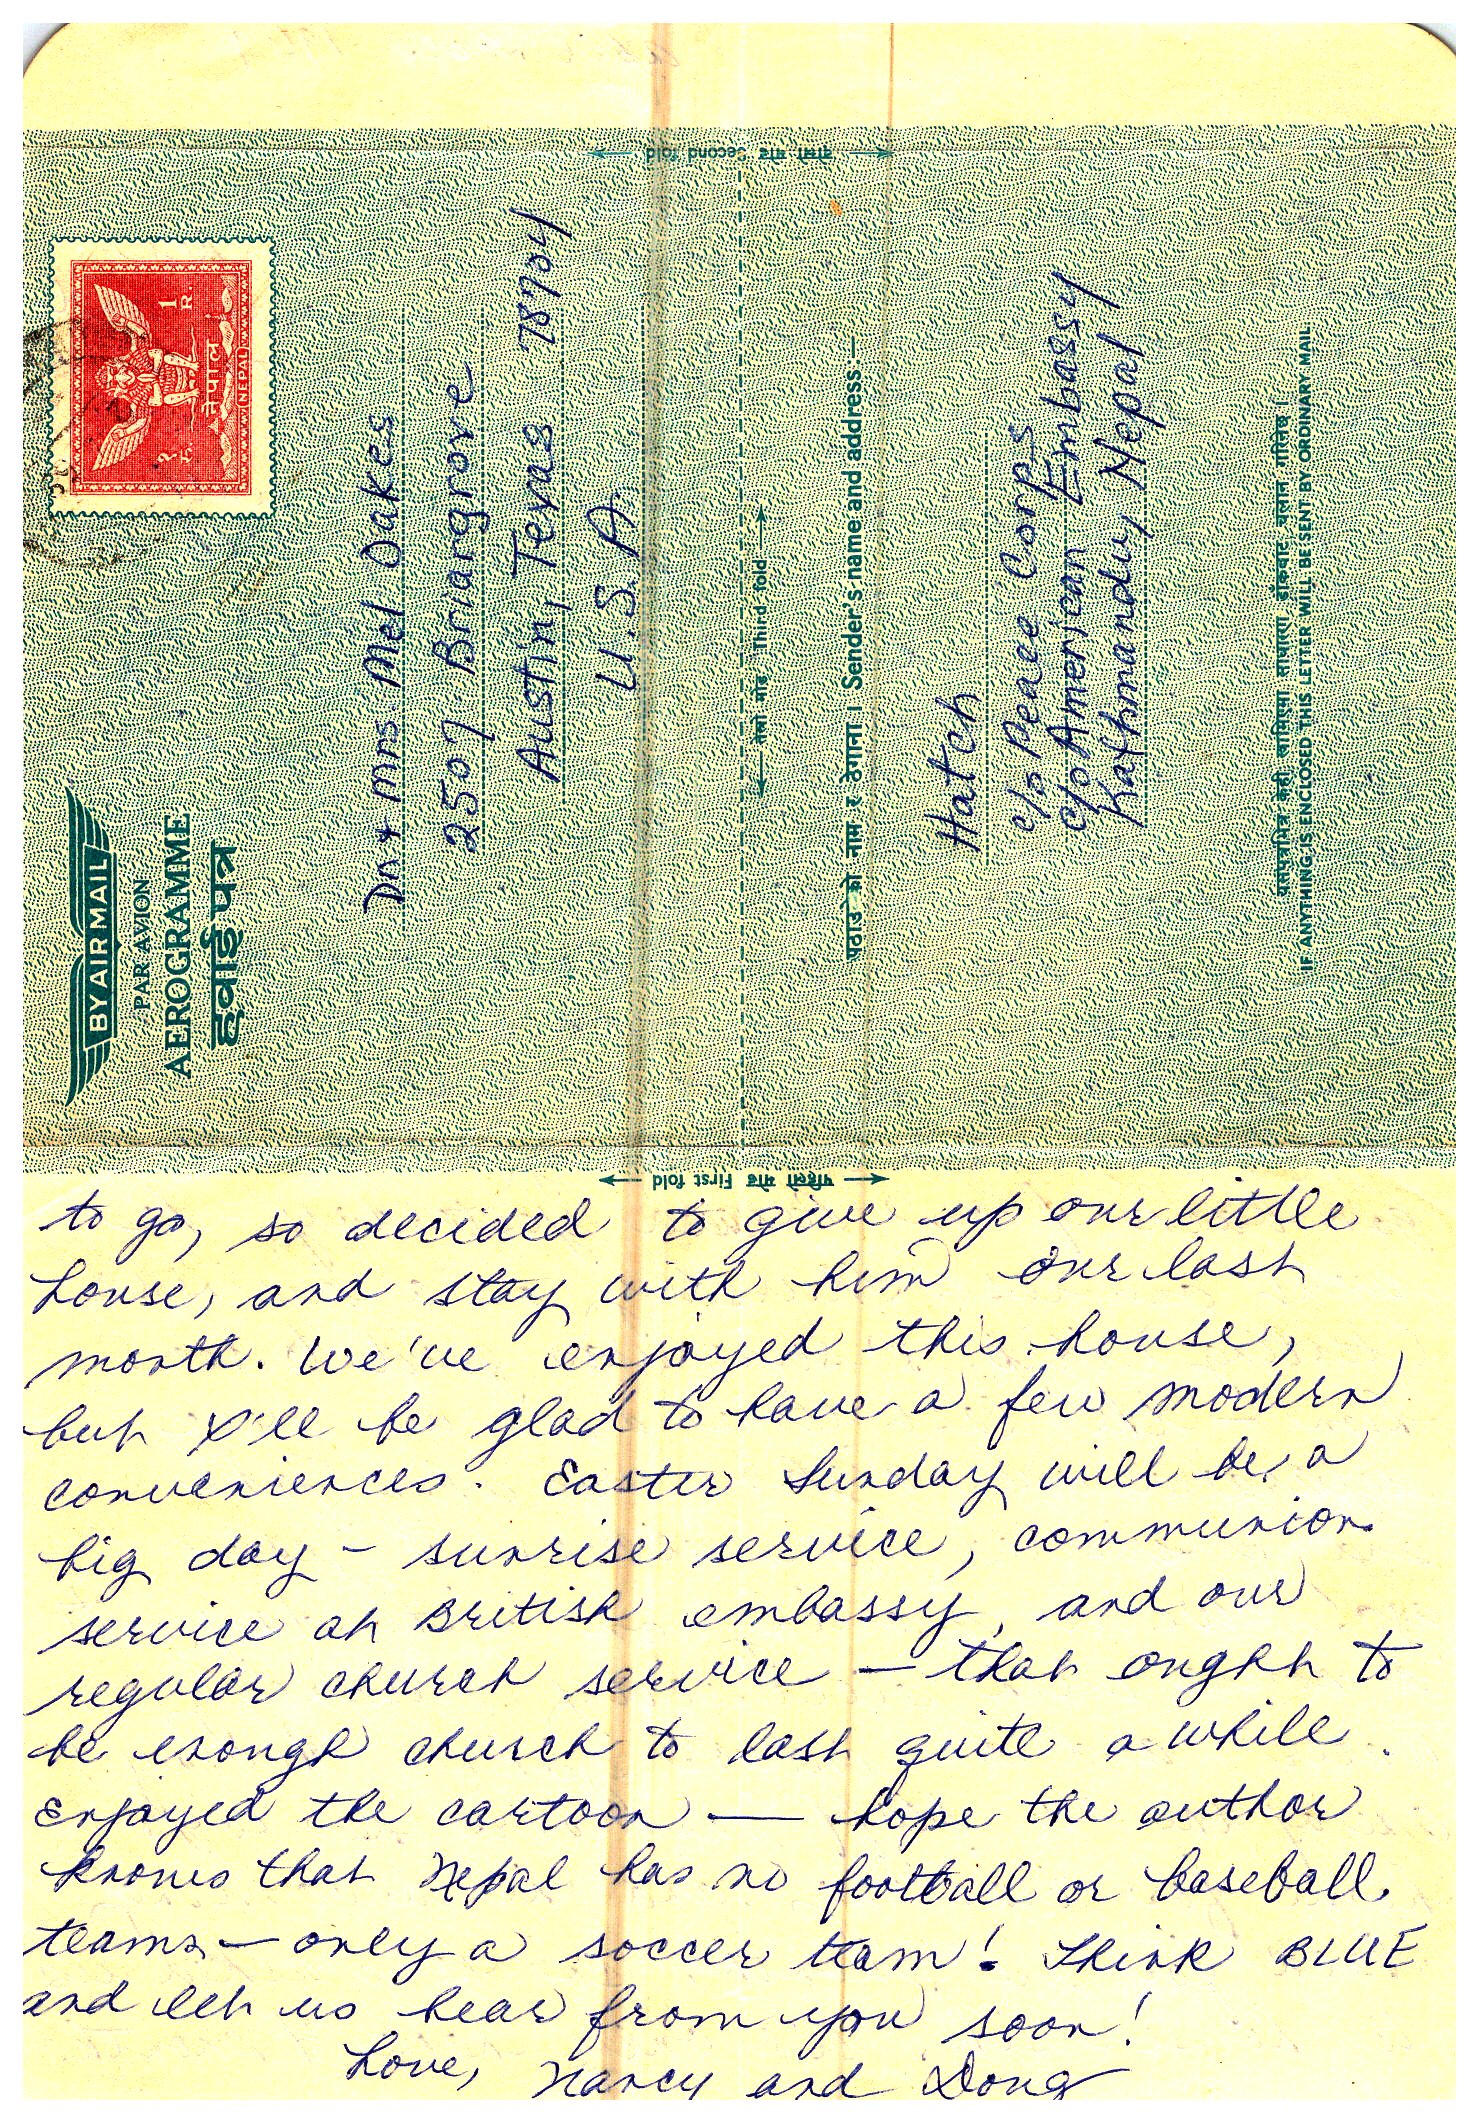 BY AIR MAIL
PAR AVION
AEROGRAMME
हवाई पत्र
१ रु.
1 R.
नेपाल
NEPAL
Dr + Mrs. Mel Oakes
2507 Briargrove
Austin, Texas 78704
U.S.A.
दोस्रो मोड Second fold
तेस्रो मोड Third fold
पठाउने को नाम र ठेगाना । Sender's name and address:—
Hatch
c/o Peace Corps
c/o American Embassy
Kathmandu, Nepal
यसपत्रभित्र केही लागिएमा साधारण डाँकबाट चलान गरिनेछ ।
IF ANYTHING IS ENCLOSED THIS LETTER WILL BE SENT BY ORDINARY MAIL
पहिलो मोड First fold
to go, so decided to give up our little
house, and stay with him our last
month. We've enjoyed this house,
but I'll be glad to have a few modern
conveniences. Easter Sunday will be a
big day - sunrise service, communion
service at British embassy, and our
regular church service — that ought to
be enough church to last quite a while.
Enjoyed the cartoon — hope the author
knows that Nepal has no football or baseball
teams — only a soccer team! Think BLUE
and let us hear from you soon!
Love, Nancy and Doug